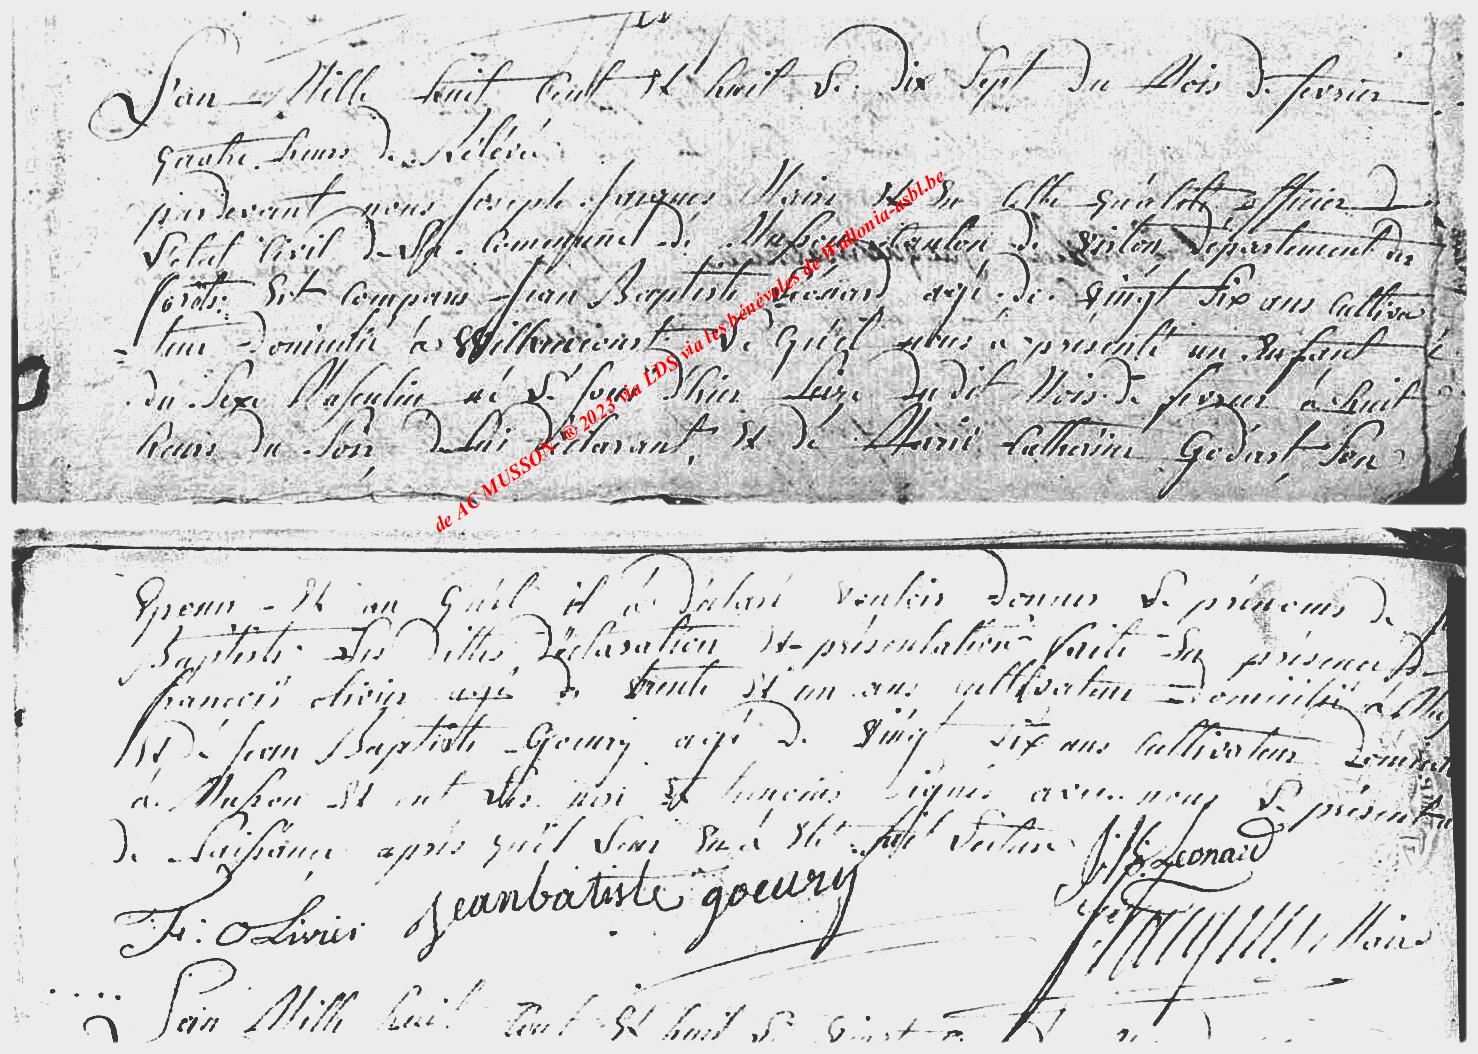 L'an Mille huit Cent Et huit Le dix Sept du Mois de fevrier
quatre heurs de Relévé
pardevant nous Joseph Jacques Maire Et En Cette qualité officier De
L'etat Civil de La Commune de Musson Canton de Virton Departement des
forets: Est comparus Jean Baptiste Léonard agé de vingt Six ans Cultiva
teur domicilié à Willancourt Le quél nous à présenté un Enfant
du Sexe Masculin né Le Jour d'hier Seize du dit Mois de fevrier à huit
heurs du Soir de Lui Déclarant, Et dé Marie Catherine Godart Son
Epouse Et au quél il à déclaré vouloir donner Le prénoms de
Baptiste Les dittes Déclaration Et présentation faite En présence de
françois olivier agé de trente Et un ans cultivateur Domicilié à
Et dé Jean Baptiste Goeury agé de Vingt Six ans Cultivateur
à Musson Et ont Les peré Et temoins Signés avec nous Le présent
de Naissance après qu'il Leur En à Eté fait Lecture
J: B: Leonard
F: OLivier Jeanbatiste goeury
Maire
L'an Mille huit Cent Et huit Le vingt
de AC MUSSON ® 2023 via LDS via les bénévoles de Wallonia-asbl.be